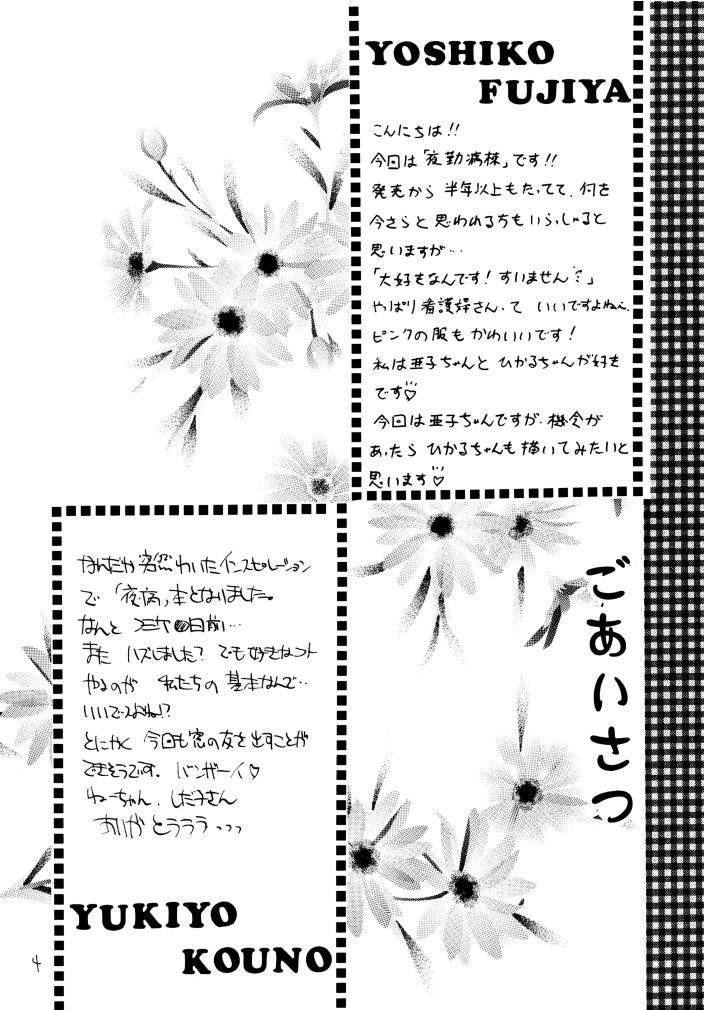 YOSHIKO
FUJIYA
こんにちは!!
今回は「夜勤病棟」です!!
発売から 半年以上もたってて、何を
今さらと思われる方もいらっしゃると
思いますが…
「大好きなんです！すいません〜」
やっぱり看護婦さんって いいですよねぇ
ピンクの服もかわいいです！
私は亜子ちゃんと ひかるちゃんが好き
です♡
今回は亜子ちゃんですが、機会が
あったら ひかるちゃんも描いてみたいと
思います♡
ごあいさつ
なんだか突然わいたインスピレーション
で 「夜病」本となりました。
なんと コミケ 日前…
また ハズしました？ でも好きなコト
やるのが 私たちの 基本なんで‥
いいですよね!?
とにかく 今回も窓の友を出すことが
できそうです。 バンザーイ♡
ねーちゃん、しだ子さん
ありがとうううう...
YUKIYO
KOUNO
4